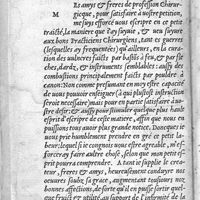 Es amys & freres de profession Chirur-
M gicque, pour satisfaire à vostre petition,
me suys efforcé vous escripre en ce petit
traicté, la maniere que i'ay suyuie, & veu suyure
aux bons practiciens Chirurgiens, tant es guerres
(lesquelles ay frequentées) qu'ailleurs, en la cura-
tion des vulneres faicts par bastons à feu, & par fle
ches, dardz, & instrumens semblables: aussy des
combustions principalement faicts par pouldre à
canon: Non comme estant de moy en presumption
de vous pouuoir enseigner (à qui plustost instruction
seroit necessaire) mais pour en partie satisfaire à uo-
stre desir: & aussy pour stimuler quelque plus hault
esprit d'escripre de ceste matiere, affin que nous en
puissions tous auoir plus grande notice. Dont ie vous
prie moult humblement prendre en gré ce petit la-
beur, lequel si ie congnoy vous estre agreable, m'ef-
forceray faire aultre chose, selon que mon petit es-
prit pourra comprendre. A tant ie supplie le crea-
teur, freres & amys, heureusement conduyre noz
oeuures soubz sa grace, augmentant tousiours noz
bonnes affections, de sorte qu'il en puisse sortir quel-
que fruict & utilité, au support de l'infirmité de la